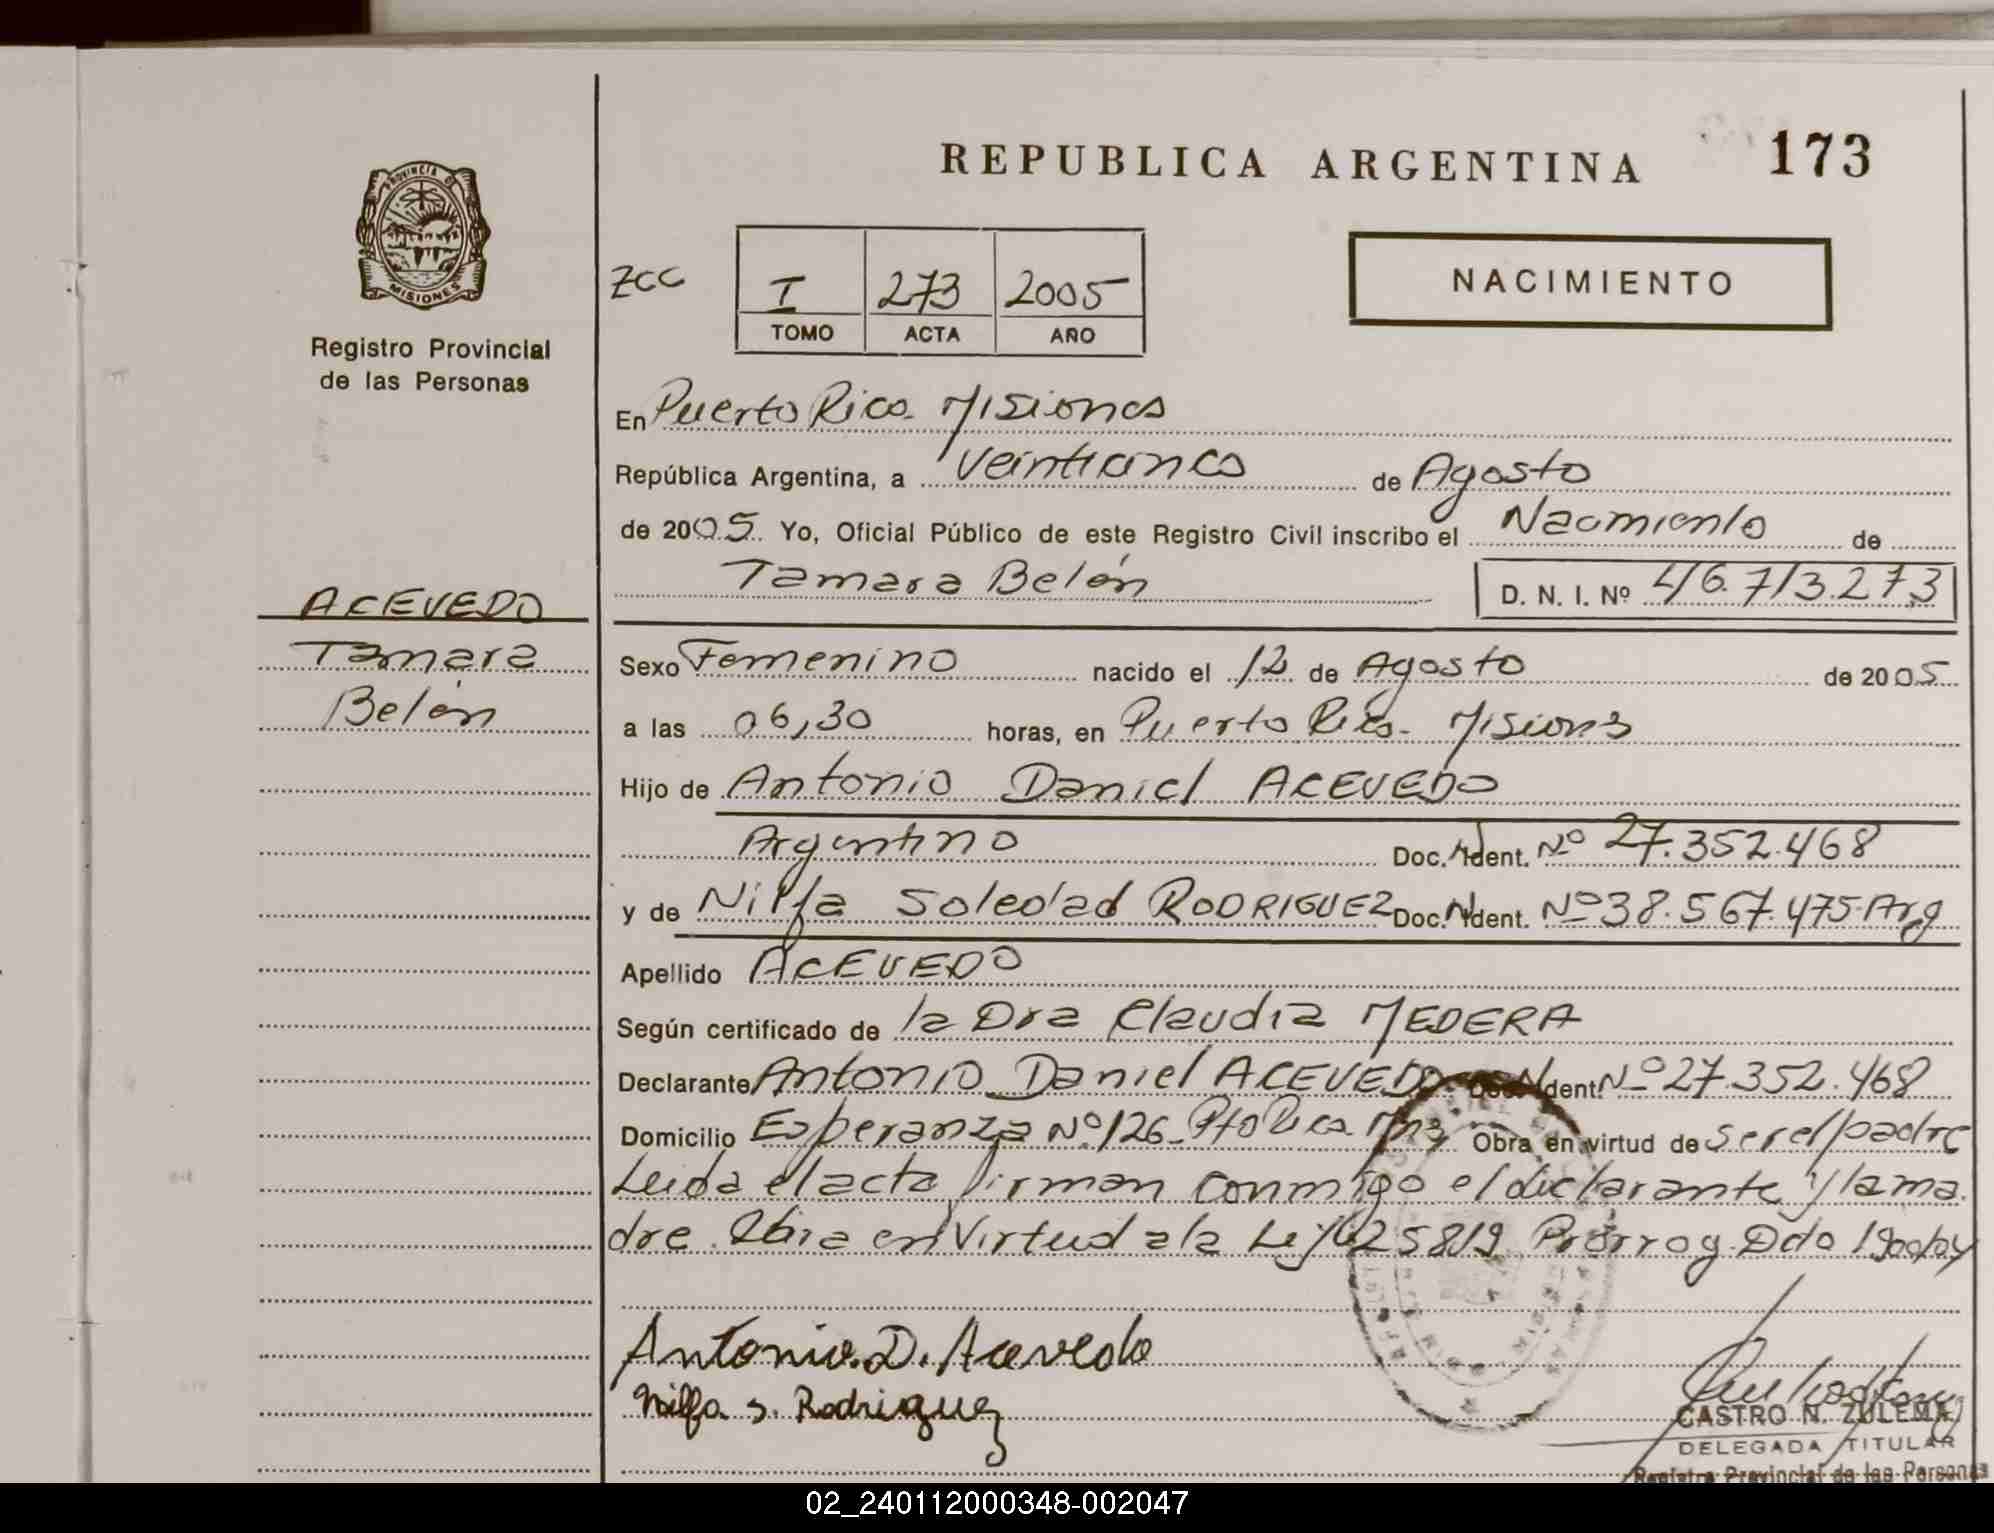 REPUBLICA ARGENTINA 173
PROVINCIA DE
MISIONES
Registro Provincial
de las Personas
ZCC
I 273 2005
TOMO ACTA AÑO
NACIMIENTO
En Puerto Rico. Misiones
República Argentina, a veinticinco de Agosto
de 2005. Yo, Oficial Público de este Registro Civil inscribo el Nacimiento de
Tamara Belén D. N. I. Nº 46.713.273
ACEVEDO
Tamara
Belén
Sexo Femenino nacido el 12 de Agosto de 2005
a las 06,30 horas, en Puerto Rico. Misiones
Hijo de Antonio Daniel ACEVEDO
Argentino Doc. Ident. Nº 27.352.468
y de Nilfa Soledad RODRIGUEZ Doc. Ident. Nº 38.567.475 Arg
Apellido ACEVEDO
Según certificado de la Dra Claudia MEDERA
Declarante Antonio Daniel ACEVEDO Doc. Ident. Nº 27.352.468
Domicilio Esperanza Nº 126 - Pto Rico. Mns Obra en virtud de ser el padre
Leida el acta firman conmigo el declarante y la ma
dre. Obra en Virtud a la Ley 25819 Prorrog. Dcto
Antonio. D. Acevedo
Nilfa S. Rodriguez
CASTRO N. ZULEMA
DELEGADA TITULAR
Registro Provincial de las Personas
02_240112000348-002047